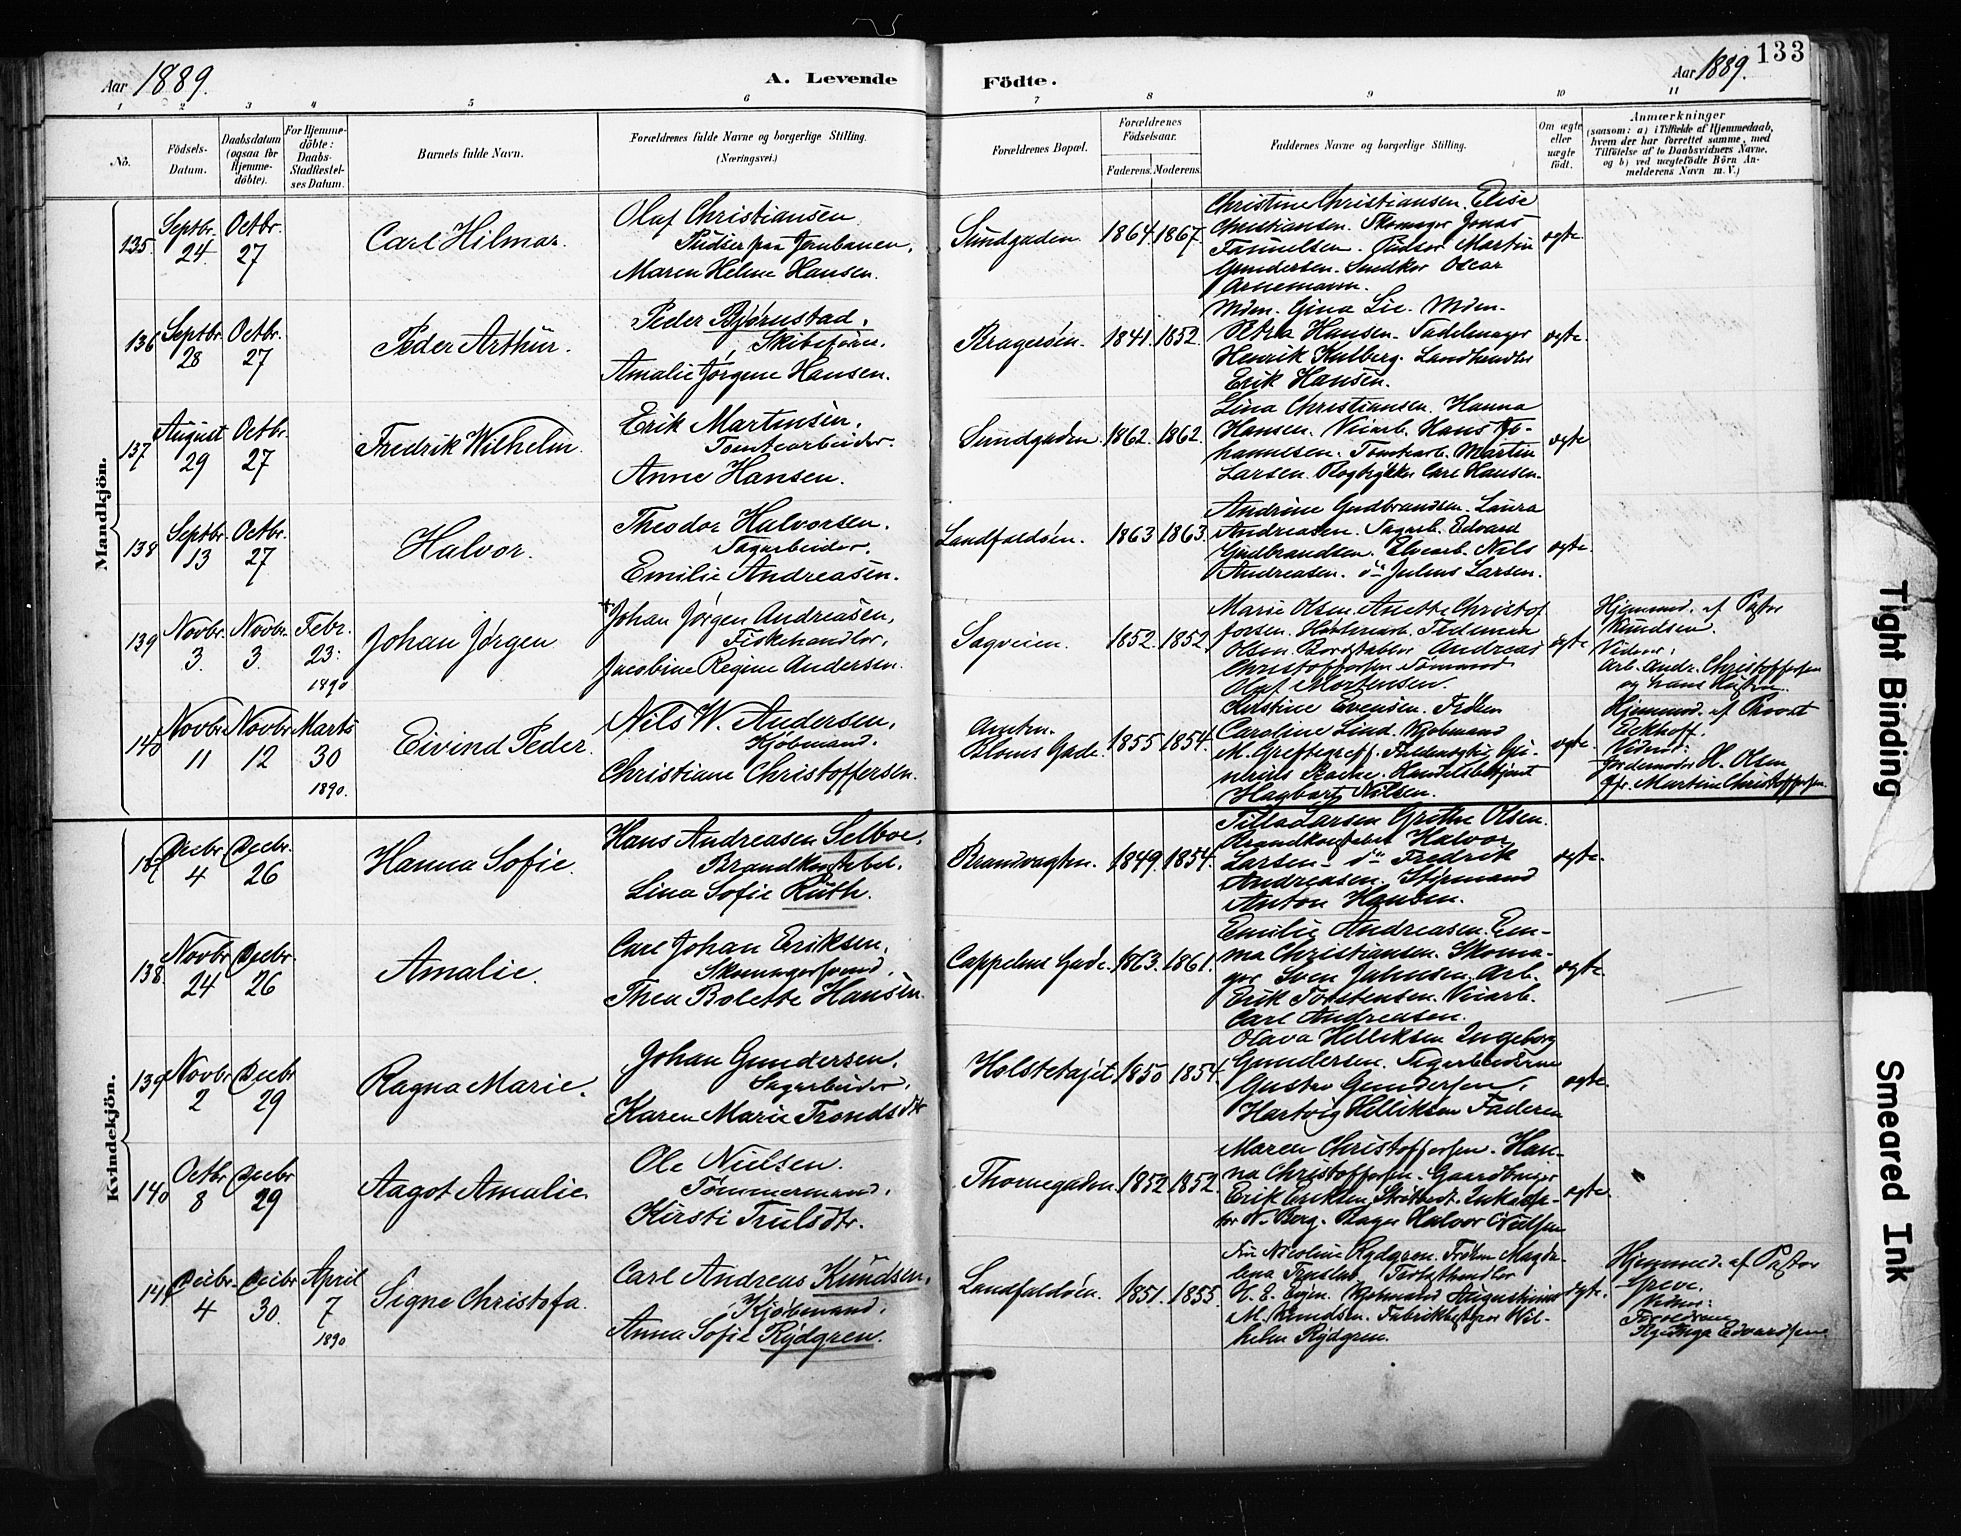 133
Aar 1889.
A. Levende
Födte.
Aar 1889.
1 2 3 4 5 6 7 8 9 10 11
No.
Födsels-
Datum.
Daabsdatum
(ogsaa for
Hjemme-
döbte).
For Hjemme-
döbte:
Daabs-
Stadfæstel-
ses Datum.
Barnets fulde Navn.
Forældrenes fulde Navne og borgerlige Stilling.
(Næringsvei.)
Forældrenes Bopæl.
Forældrenes
Födselsaar.
Faderens. Moderens.
Faddernes Navne og borgerlige Stilling.
Om ægte
eller
uægte
födt.
Anmærkninger
(saasom: a) i Tilfælde af Hjemmedaab,
hvem der har forrettet samme, med
Tilföielse af to Daabsvidners Navne,
og b) ved uægtefödte Börn An-
melderens Navn m. V.)
Mandkjön.
135. Septbr. 24. Octbr. 27
Carl Hilmar.
Olaf Christiansen
Pudser paa Jernbanen,
Maren Helene Hansen.
Sundgaden 1864. 1867.
Christine Christiansen. Elise
Christiansen. Skomager Jonas
Pudser Martin
Gundersen. Oscar
Arnemann.
ægte
136 Septbr. 28 Octbr. 27
Peder Arthur.
Peder Bjørnstad,
Skibsfører.
Amalie Jørgine Hansen.
Bragerøen. 1841. 1852.
Mdm. Gina Lie. Mdm.
Petra Hansen. Sadelmager
Henrik Kulberg. Landhandler
Erik Hansen.
ægte.
137 August 29 Octbr. 27
Fredrik Wilhelm.
Erik Martinsen,
Tomtearbeider.
Anne Hansen.
Sundgaden. 1862. 1862.
Lina Christiansen. Hanna
Hansen. Veiarb. Hans Jo-
hannesen. Tomtearb. Martin
Larsen. Bogtrykker Carl Hansen.
ægte
138 Septbr. 13 Octbr. 27
Halvor.
Theodor Halvorsen.
Sagarbeider.
Emilie Andreasen.
Landfaldøen. 1863 1863.
Andrine Gudbrandsen. Laura
Andreasen. Sagarb. Edvard
Gudbrandsen. Elvearb. Nils
Andreasen. do Julius Larsen.
ægte.
139 Novbr. 3. Novbr. 3 Febr. 23: 1890
Johan Jørgen
+Johan Jørgen Andreasen,
Fiskehandler,
Jacobine Regine Andersen.
Sagveien. 1852. 1852
Marie Olsen. Anette Christof
fersen. Tideman
Olsen. Andreas
Christoffersen. Tømmand
Olaf Mortensen.
ægte
Hjemmed. af Pastor
Knudsen.
Vidner:
Arb. Andr. Christoffersen
og hans Hustru.
140 Novbr. 11 Novbr. 12 Marts 30 1890.
Eivind Peder.
Nils W. Andersen,
Kjøbmand.
Christiane Christoffersen.
Amtm.
Bloms Gade. 1855 1854.
Kirstine Evensen. Frøken
Caroline Lind. Kjøbmand
M. Greftegreff.
Handelsbetjent
Hagbart Nilsen.
ægte.
Hjemmed. af Provst
Eckhoff.
Vidner:
Jordemoder H. Olsen
Jfr. Martine Christoffersen.
Kvindekjön.
137 Decbr 4 Decbr. 26
Hanna Sofie.
Hans Andreasen Selboe,
Brandkonstabel.
Lina Sofie Ruth.
Brandvagten. 1849. 1854.
Grethe Olsen.
Brandkonstabel Halvor
Larsen - do Fredrik
Andreasen. Styrmand
Anton Hansen.
ægte.
138 Novbr 24 Decbr. 26
Amalie.
Carl Johan Eriksen,
Skomagersvend.
Thea Bolette Hansen.
Cappelens Gade. 1863. 1861.
Emilie Andreasen. Em-
ma Christiansen. Skoma-
ger Sven Johnsen. Arb.
Erik Torstensen. Veiarb.
Carl Andreasen.
ægte
139 Novbr 2 Decbr 29
Ragna Marie.
Johan Gundersen,
Sagarbeider,
Karen Marie Trondsdtr
Holstetøjet 1850 1854.
Olava Helliksen Ingeborg
Gundersen. Sagarbeiderne
Gustav Gundersen,
Hartvig Helliksen Faderen
ægte.
140 Octbr 8 Decbr 29
Aagot Amalie
Ole Nielsen.
Tømmermand,
Kirsti Trulsdtr.
Thornegaden 1852 1852.
Maren Christoffersen. Han-
na Christoffersen. Gaardbruger
Erik Eriksen
N. Berg. Bager Halvor Nielsen
ægte.
141 Decbr. 4 Decbr 30. April 7 1890
Signe Christofa.
Carl Andreas Knudsen,
Kjøbmand.
Anna Sofie Rydgren.
Landfaldøen. 1851. 1855.
Fru Nicoline Rydgren. Frøken Magda-
lena
Kjøbmand Augustinius
M. Knudsen. Fabrikbestyrer Wil-
helm Rydgren.
ægte.
Hjemmed. af Pastor
Greve.
Vidner:
Faderen
Inga Edvardsen
Tight Binding
Smeared Ink